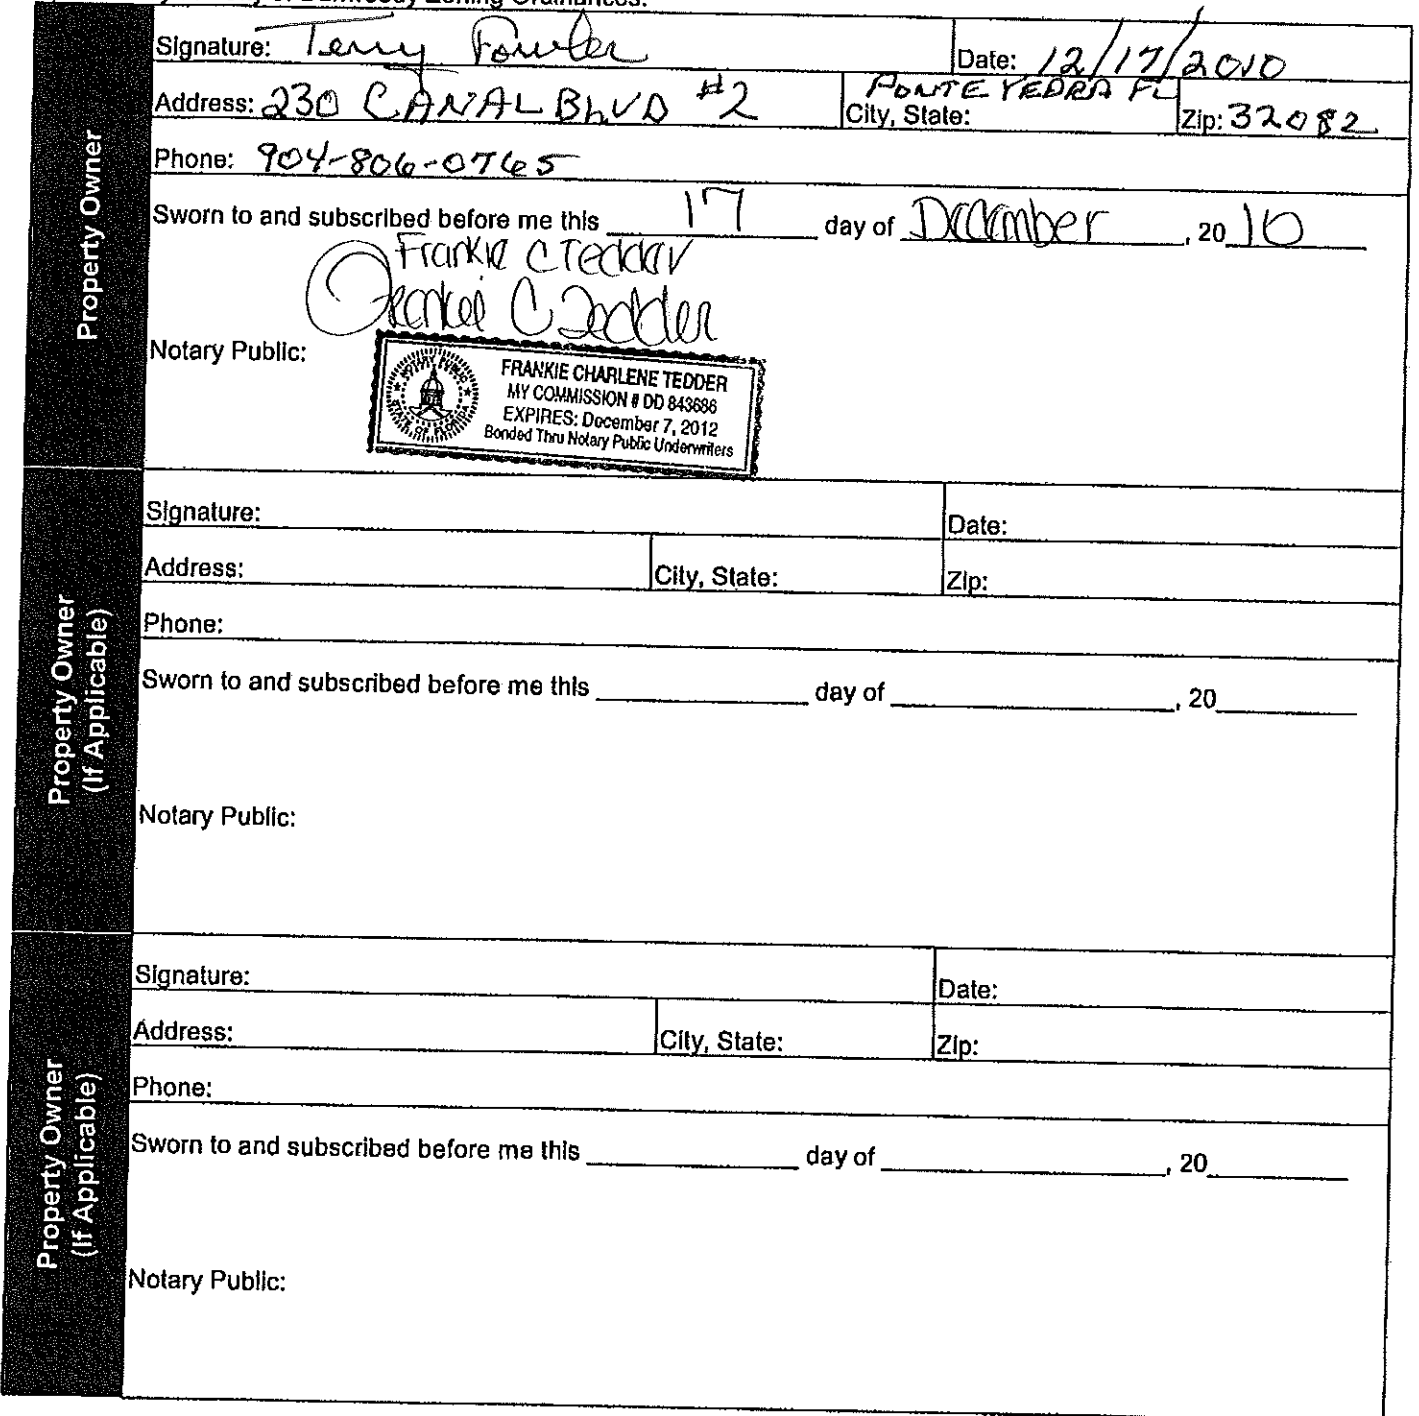 Zoning Ordinances.
Property Owner
Signature: Terry Fowler Date: 12/17/2010
Address: 230 CANAL BLVD #2 City, State: PONTE VEDRA FL Zip: 32082
Phone: 904-806-0765
Sworn to and subscribed before me this 17 day of December, 2010
Frankie C Tedder
Frankie C Tedder
Notary Public:
NOTARY PUBLIC
STATE OF FLORIDA
FRANKIE CHARLENE TEDDER
MY COMMISSION # DD 843686
EXPIRES: December 7, 2012
Bonded Thru Notary Public Underwriters
Property Owner
(If Applicable)
Signature: Date:
Address: City, State: Zip:
Phone:
Sworn to and subscribed before me this ____ day of ____, 20____
Notary Public:
Property Owner
(If Applicable)
Signature: Date:
Address: City, State: Zip:
Phone:
Sworn to and subscribed before me this ____ day of ____, 20____
Notary Public: